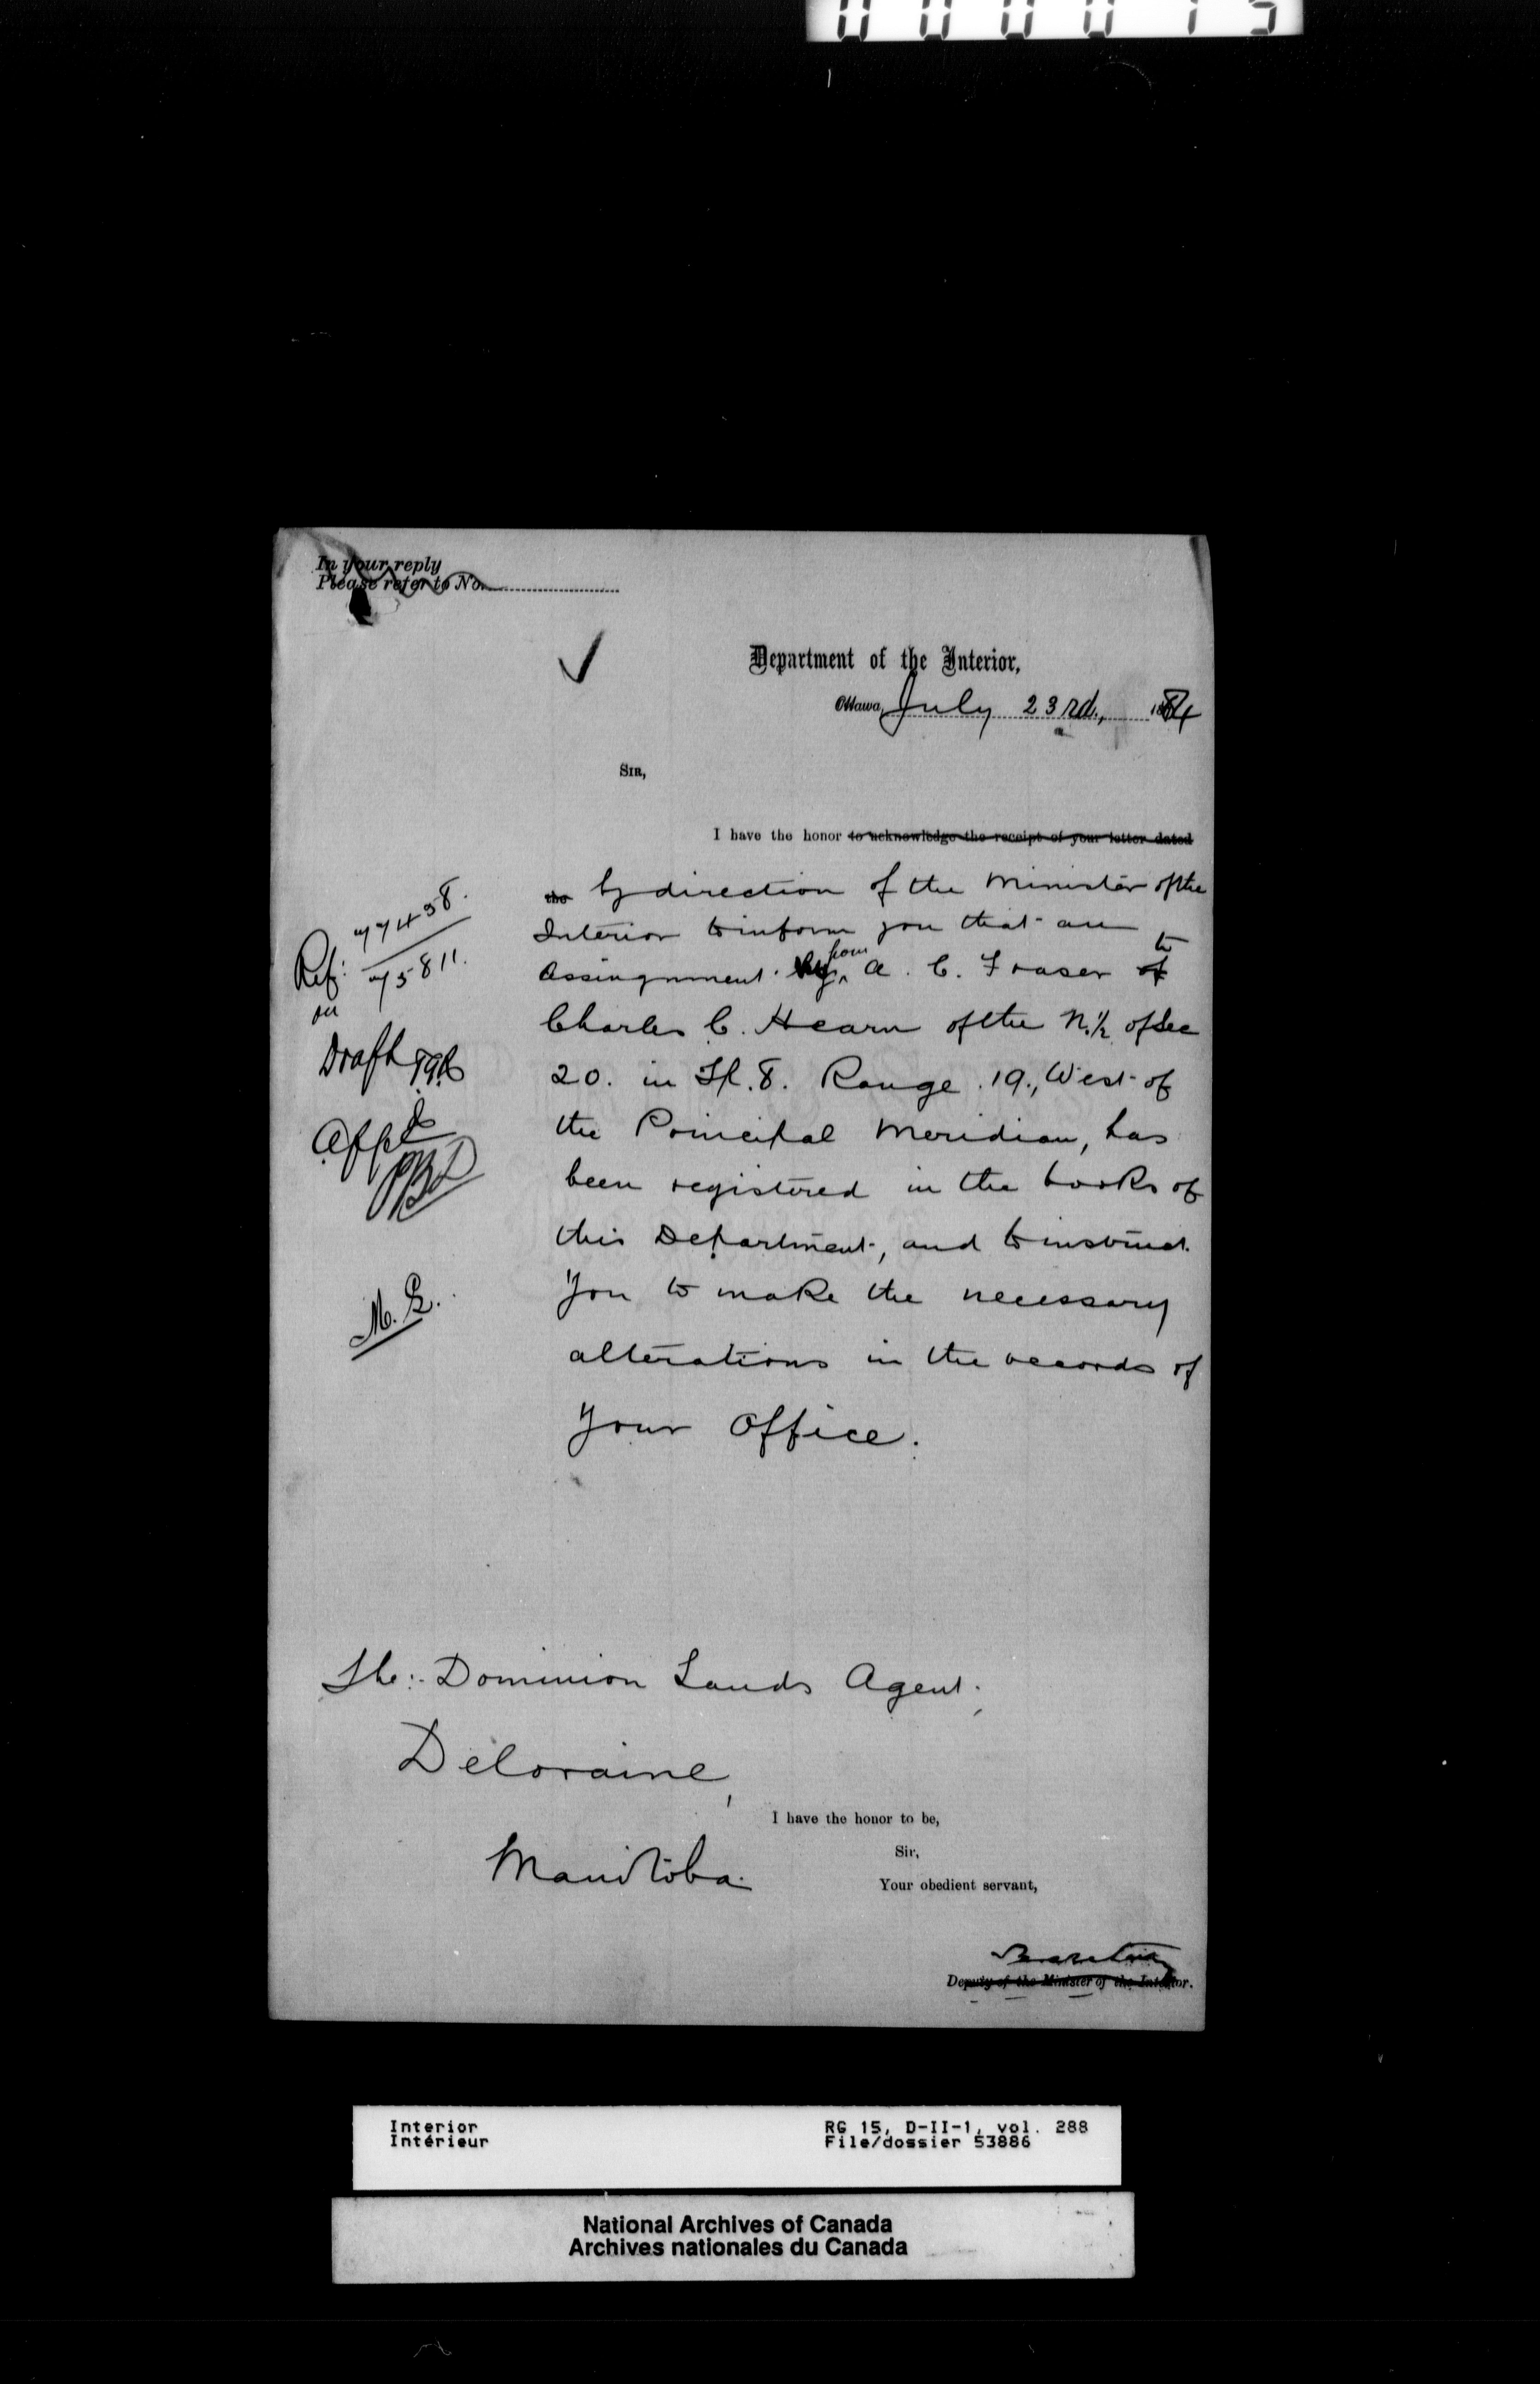 In your reply
Please refer to No.
Department of the Interior,
Ottawa, July 23rd., 1884
Sir,
I have the honor to acknowledge the receipt of your letter dated
the by direction of the Minister of the
Interior to inform you that an
Assingnment by from A. C. Fraser of to
Charles C. Hearn of the N.½ of Sec
20. in Tp. 8. Range 19., West of
the Principal Meridian, has
been registered in the books of
this Department, and to instruct
you to make the necessary
alterations in the records of
your Office.
Ref: 77458.
75811.
on
Draft
M.B.
The Dominion Lands Agent,
Deloraine,
Manitoba.
I have the honor to be,
Sir,
Your obedient servant,
Secretary
Deputy of the Minister of the Interior.
Interior
Intérieur
RG 15, D-II-1, vol. 288
File/dossier 53886
National Archives of Canada
Archives nationales du Canada